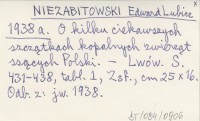 NIEZABITOWSKI Edward Lubicz
1938 a. O kilku ciekawszych
szczątkach kopalnych zwierząt
ssących Polski. — Lwów. S.
431-438, tabl. 1, 2 sf., cm 25 x 16.
Odb. z: jw. 1938.